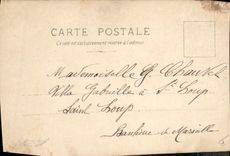 CARTE POSTALE
Ce côté est exclusivement réservé à l'adresse
Mademoiselle G.
Villa Gabrielle à St Loup
Saint Loup
Banlieue de Marseille